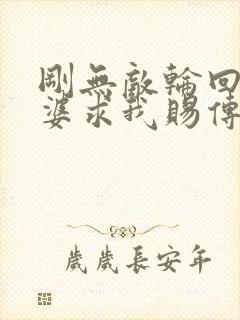 剛無敵輪回
婆求我賜傳
歲歲長安年